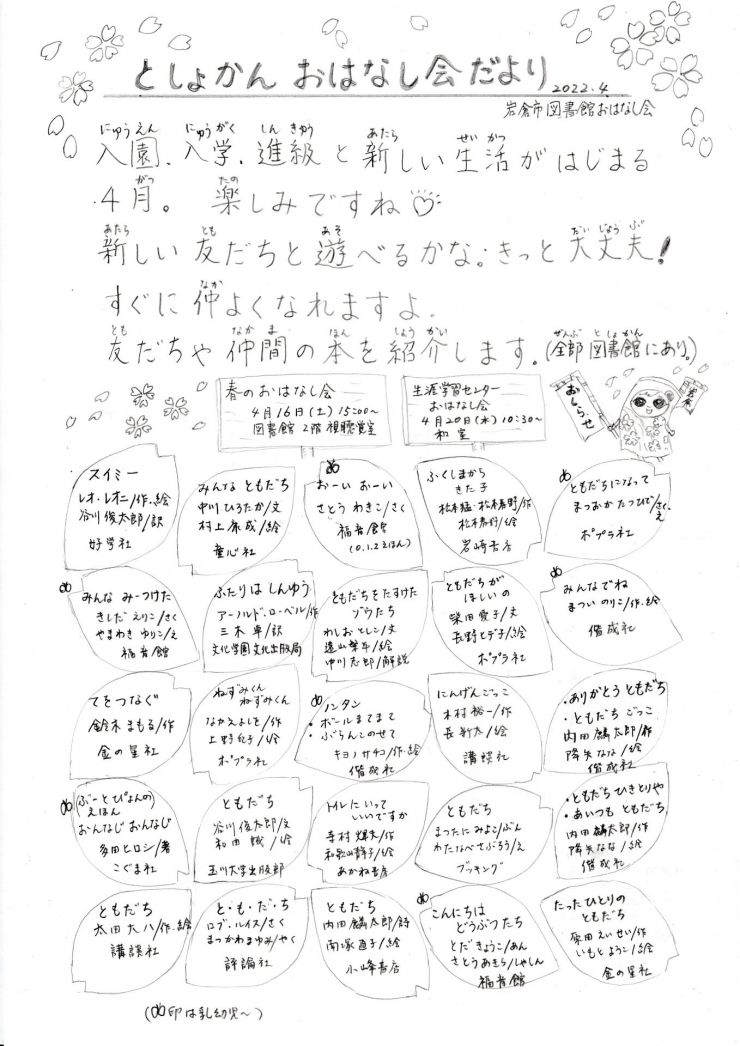 としょかん おはなし会だより
2022.4
岩倉市図書館おはなし会
にゅうえん にゅうがく しんきゅう あたら せいかつ
入園、入学、進級と新しい生活がはじまる
がつ たの
4月。楽しみですね
あたら とも あそ だいじょうぶ
新しい友だちと遊べるかな。きっと大丈夫!
なか
すぐに仲よくなれますよ。
とも なかま ほん しょうかい ぜんぶ としょかん
友だちや仲間の本を紹介します。(全部図書館にあり。)
春のおはなし会
4月16日(土)15:00~
図書館 2階視聴覚室
生涯学習センター
おはなし会
4月20日(水)10:30~
和室
おしらせ
スイミー
レオ・レオニ/作・絵
谷川俊太郎/訳
好学社
みんなともだち
中川ひろたか/文
村上康成/絵
童心社
おーい おーい
さとう わきこ/さく
福音館
(0.1.2えほん)
ふくしまから
きた子
松本猛・松本春野/作
松本春野/絵
岩崎書店
ともだちになって
まつおか たつひで/さく、え
ポプラ社
みんな みーつけた
きしだ えりこ/さく
やまわき ゆりこ/え
福音館
ふたりは しんゆう
アーノルド・ローベル/作
三木卓/訳
文化学園文化出版局
ともだちをたすけた
ゾウたち
わしお としこ/文
遠山繁年/絵
中川志郎/解説
ともだちが
ほしいの
柴田愛子/文
長野ヒデ子/絵
ポプラ社
みんなでね
まつい のりこ/作・絵
偕成社
てをつなぐ
鈴木まもる/作
金の星社
ねずみくん
ねずみくん
なかえよしを/作
上野紀子/絵
ポプラ社
ノンタン
・ボールまてまて
・ぶらんこのせて
キヨノサチコ/作・絵
偕成社
にんげんごっこ
木村裕一/作
長新太/絵
講談社
・ありがとうともだち
・ともだちごっこ
内田麟太郎/作
降矢なな/絵
偕成社
(ぶーとぴょんの)
えほん
おんなじおんなじ
多田ヒロシ/著
こぐま社
ともだち
谷川俊太郎/文
和田誠/絵
玉川大学出版部
トイレにいって
いいですか
寺村輝夫/作
和歌山静子/絵
あかね書房
ともだち
まつたにみよこ/ぶん
わたなべさぶろう/え
ブッキング
・ともだちひきとりや
・あいつもともだち
内田麟太郎/作
降矢なな/絵
偕成社
ともだち
太田大八/作・絵
講談社
と・も・だ・ち
ロブ・ルイス/さく
まつかわまゆみ/やく
評論社
ともだち
内田麟太郎/詩
南塚直子/絵
小峰書店
こんにちは
どうぶつたち
とだきょうこ/あん
さとうあきら/しゃしん
福音館
たったひとりの
ともだち
原田えいせい/作
いもとようこ/絵
金の星社
(め印は乳幼児~)